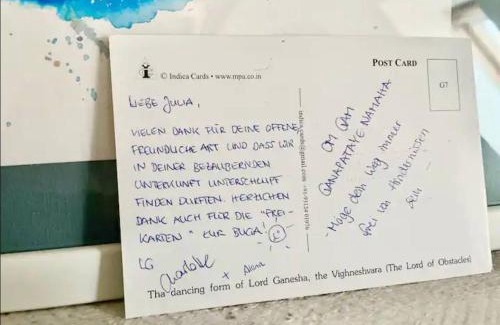 © Indica Cards • www.mpu.co.in
POST CARD
G7
LIEBE JULIA,
VIELEN DANK FÜR DEINE OFFENE,
FREUNDLICHE ART UND DASS WIR
IN DEINER BEZAUBERNDEN
UNTERKUNFT UNTERSCHLUPF
FINDEN DURFTEN. HERZLICHEN
DANK AUCH FÜR DIE "FREI-
KARTEN" ZUR BUGA!
LG
Charlotte
+
OM GAM
GANAPATAYE NAMAHA
- Möge dein Weg immer
frei von Hindernissen
sein -
The dancing form of Lord Ganesha, the Vighneshvara (The Lord of Obstacles)